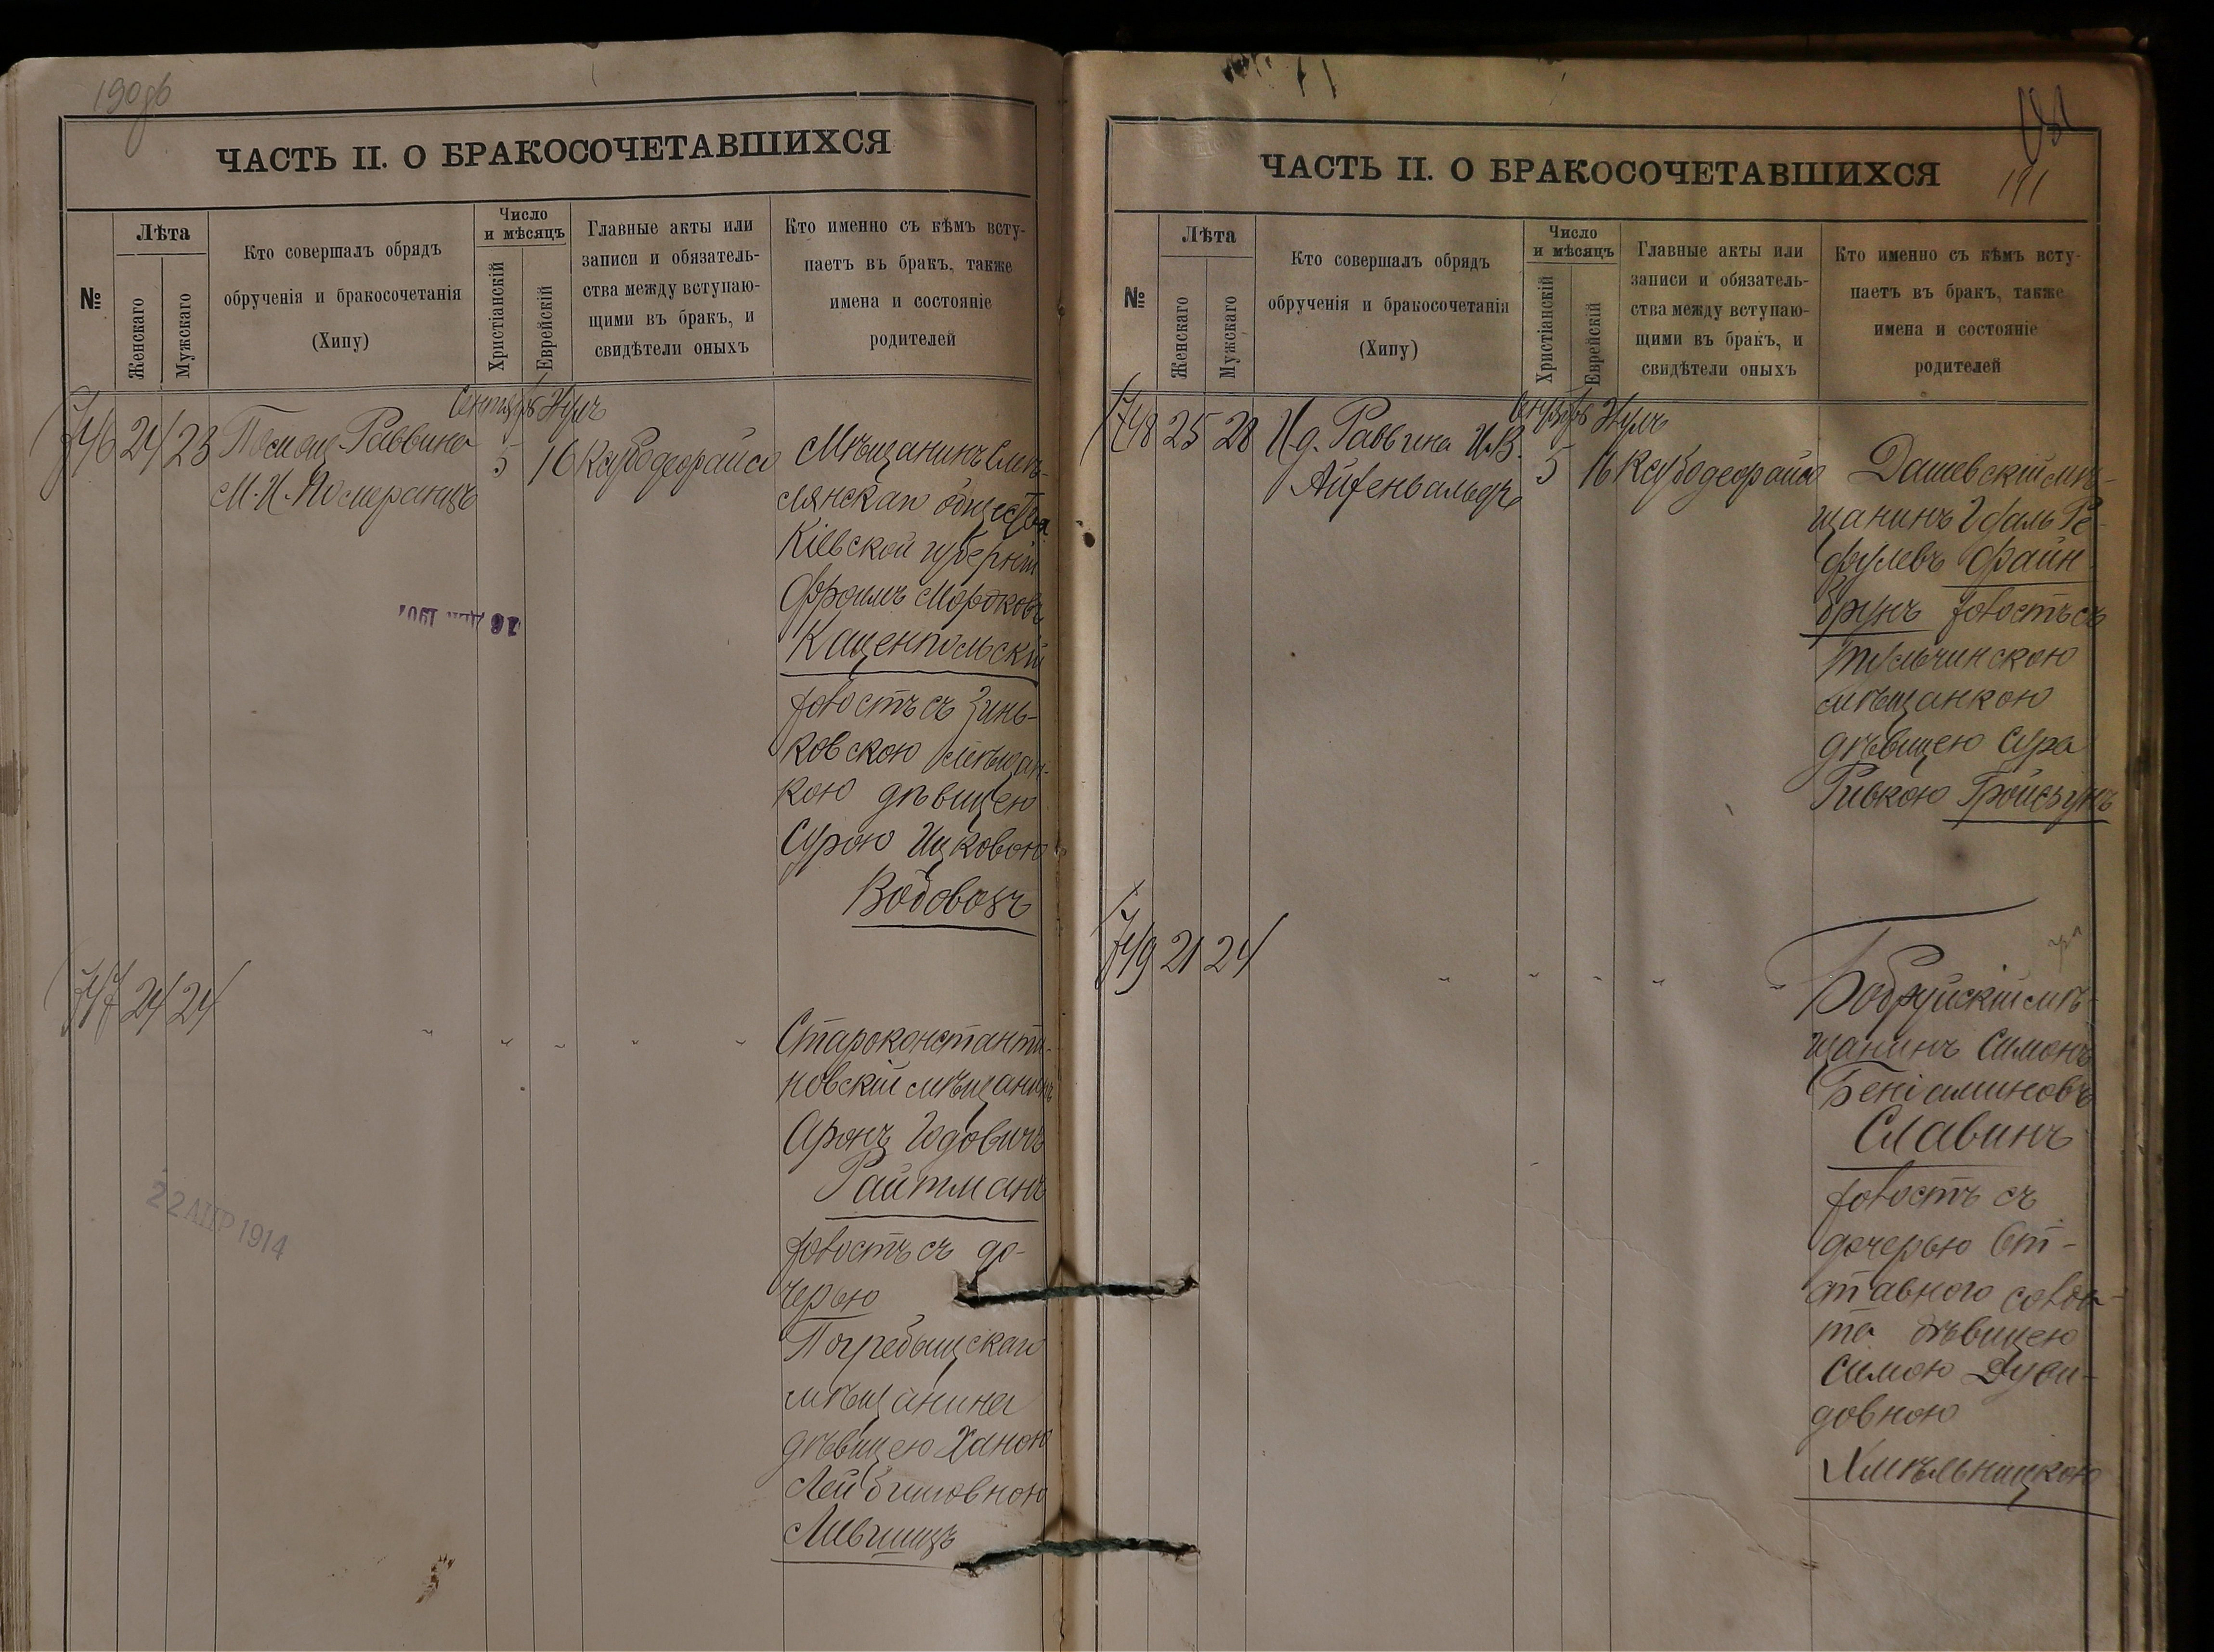 ЧАСТЬ II. О БРАКОСОЧЕТАВШИХСЯ
№
Лѣта
Женскаго
Мужскаго
Кто совершалъ обрядъ
обрученія и бракосочетанія
(Хипу)
Число
и мѣсяцъ
Христіанскій
Еврейскій
Главные акты или
записи и обязатель-
ства между вступаю-
щими въ бракъ, и
свидѣтели оныхъ
Кто именно съ кѣмъ всту-
паетъ въ бракъ, также
имена и состояніе
родителей
Сентябрь Элулъ
746 24 23 Помощ. Раввина 5 16
М. И. Померанцъ
Мѣщанинъ
общества
Кіевской губерніи
Фроимъ Мордковъ
Каценпольскій
холостъ съ Зинь-
ковскою мѣщан-
кою дѣвицею
Сурою Ицковою
Водовозъ
747 24 24
Староконстанти-
новскій мѣщанинъ
Аронъ Юдовичъ
Райтманъ
холостъ съ до-
черью
Погребыщскаго
мѣщанина
дѣвицею Ханою
Лейбишовною
Лившицъ
22 АПР 1914
ЧАСТЬ II. О БРАКОСОЧЕТАВШИХСЯ
191
№
Лѣта
Женскаго
Мужскаго
Кто совершалъ обрядъ
обрученія и бракосочетанія
(Хипу)
Число
и мѣсяцъ
Христіанскій
Еврейскій
Главные акты или
записи и обязатель-
ства между вступаю-
щими въ бракъ, и
свидѣтели оныхъ
Кто именно съ кѣмъ всту-
паетъ въ бракъ, также
имена и состояніе
родителей
Сентябрь Элулъ
748 25 28 И. д. Раввина И. В. 5 16
Айзенвальдъ
Дашевскій мѣ-
щанинъ
Файн
брунъ холостъ съ
Тульчинскою
мѣщанкою
дѣвицею Сура
Ривкою Гройсзунъ
749 21 24
Бобруйскій мѣ-
щанинъ Симонъ
Беніаминовъ
Славинъ
холостъ съ
дочерью От-
ставного солда-
та дѣвицею
Симою Дуви-
довною
Хмѣльницкою